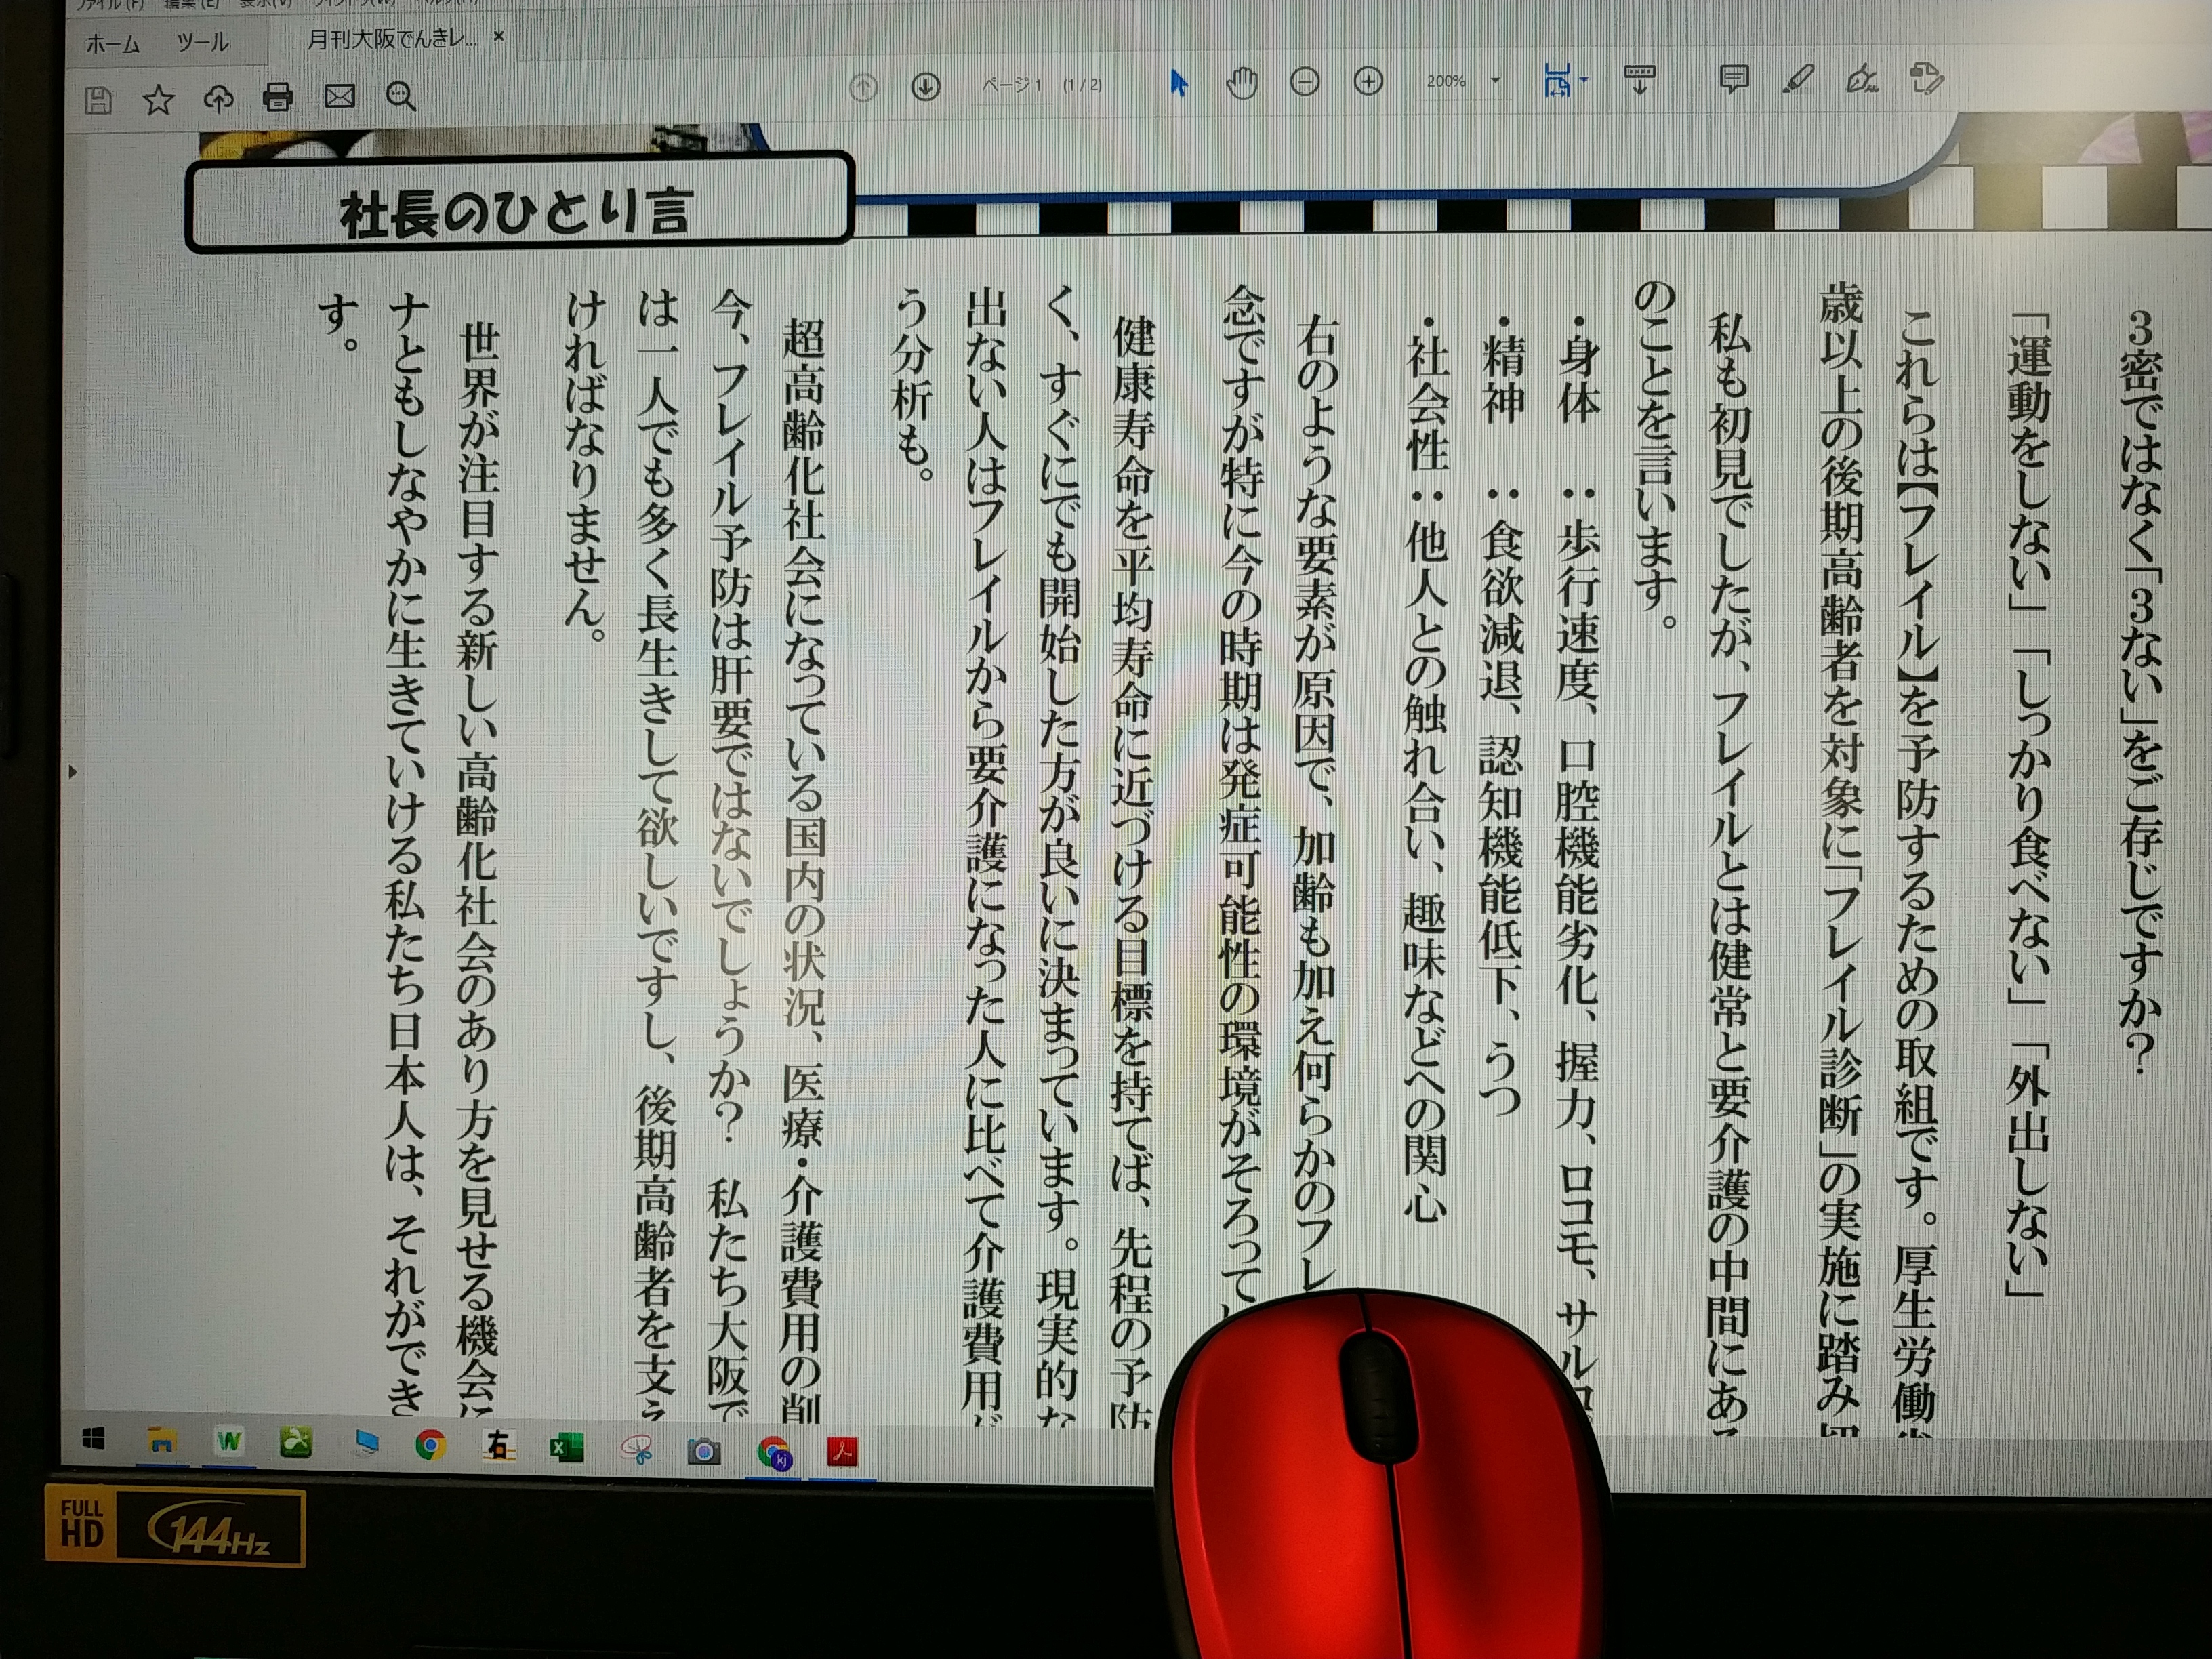 ファイル(F) 編集(E) 表示(V) ウィンドウ(W) ヘルプ(H)
ホーム ツール 月刊大阪でんきレ... ×
ページ 1 (1 / 2) 200%
社長のひとり言
3密ではなく「3ない」をご存じですか?
「運動をしない」「しっかり食べない」「外出しない」
これらは【フレイル】を予防するための取組です。厚生労働
歳以上の後期高齢者を対象に「フレイル診断」の実施に踏み
私も初見でしたが、フレイルとは健常と要介護の中間にある
のことを言います。
・身体 : 歩行速度、口腔機能劣化、握力、ロコモ、サルコ
・精神 : 食欲減退、認知機能低下、うつ
・社会性 : 他人との触れ合い、趣味などへの関心
右のような要素が原因で、加齢も加え何らかのフレ
念ですが特に今の時期は発症可能性の環境がそろって
健康寿命を平均寿命に近づける目標を持てば、先程の予防
く、すぐにでも開始した方が良いに決まっています。現実的な
出ない人はフレイルから要介護になった人に比べて介護費用が
う分析も。
超高齢化社会になっている国内の状況、医療・介護費用の削
今、フレイル予防は肝要ではないでしょうか? 私たち大阪で
は一人でも多く長生きして欲しいですし、後期高齢者を支え
ければなりません。
世界が注目する新しい高齢化社会のあり方を見せる機会に
ナともしなやかに生きていける私たち日本人は、それができ
す。
右
kj
FULL HD
144Hz